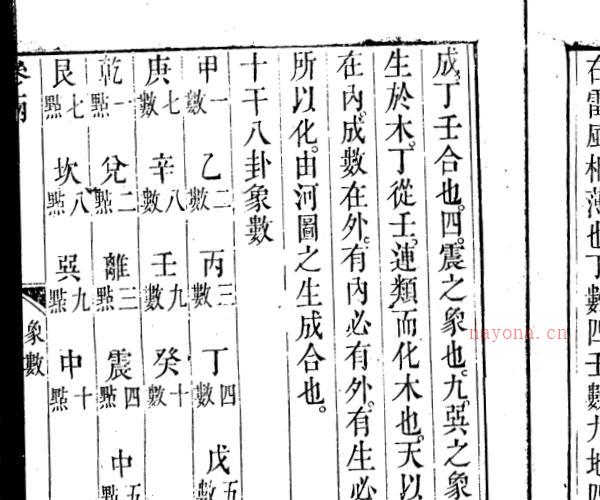 在雷風相薄也丁數四壬數九地四
成丁壬合也。四。震之象也。九。巽之象
生於木。丁從壬。連類而化木也。天以
在內。成數在外。有內必有外。有生必
所以化。由河圖之生成合也。
十干八卦象數
甲一數 乙二數 丙三數 丁四數 戊五
庚七數 辛八數 壬九數 癸十數
乾一點 兌二點 離三點 震四點 中五點
艮七點 坎八點 巽九點 中十點
象數
nayona.cn